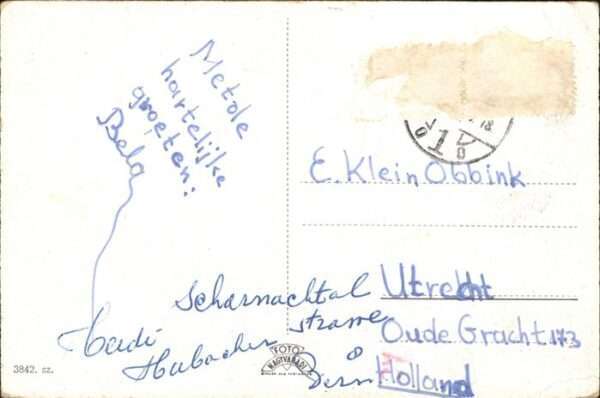 Metole
hartelijke
groeten:
Bela
E. Klein Obbink
Utrecht
Oude Gracht 173
Holland
Scharnachtal
strasse 8
Hubacher
Bern
3842. sz.
FOTO